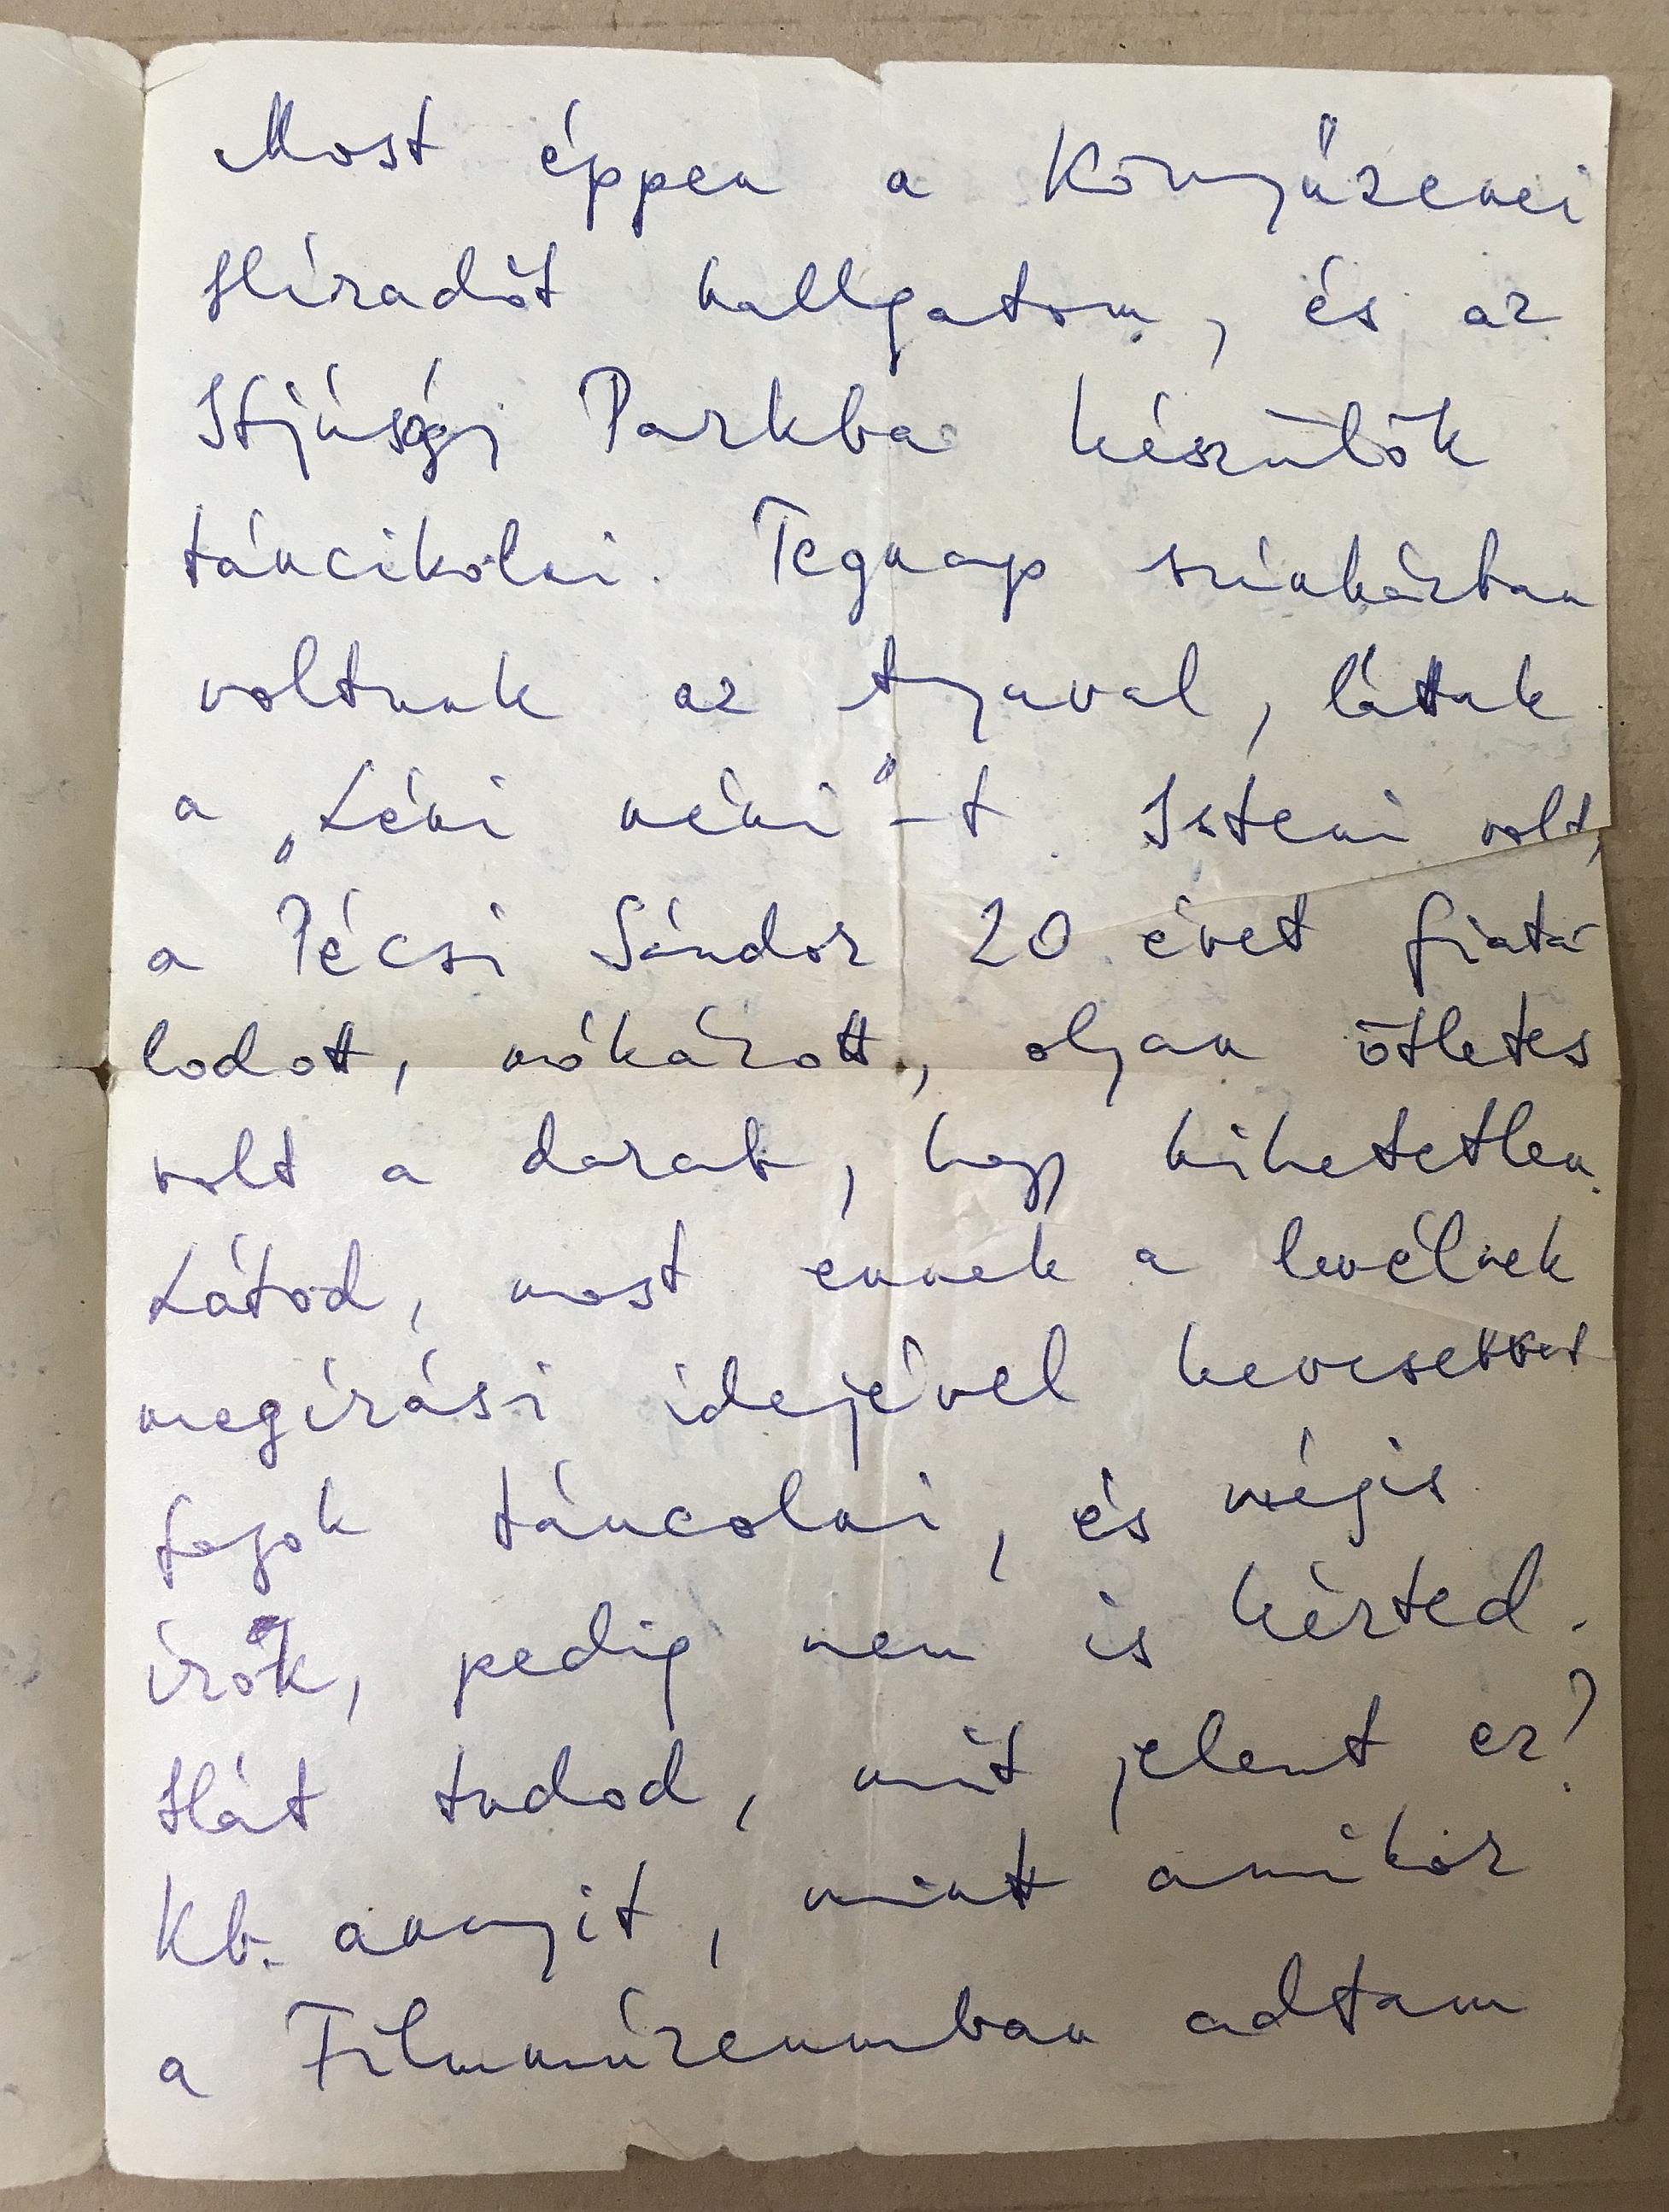 Most éppen a Könnyűzenei
Híradót hallgatom, és az
Ifjúsági Parkba készülök
táncikolni. Tegnap színházban
voltunk az anyával, láttuk
a „Léni néni"-t. Isteni volt,
a Pécsi Sándor 20 évet fiata-
lodott, mókázott, olyan ötletes
volt a darab, hogy hihetetlen.
Látod, most ennek a levélnek
megírási idejével kevesebbet
fogok táncolni, és mégis
írok, pedig nem is kérted.
Hát tudod, mit jelent ez?
Kb. annyit, mint amikor
a Filmmúzeumban adtam